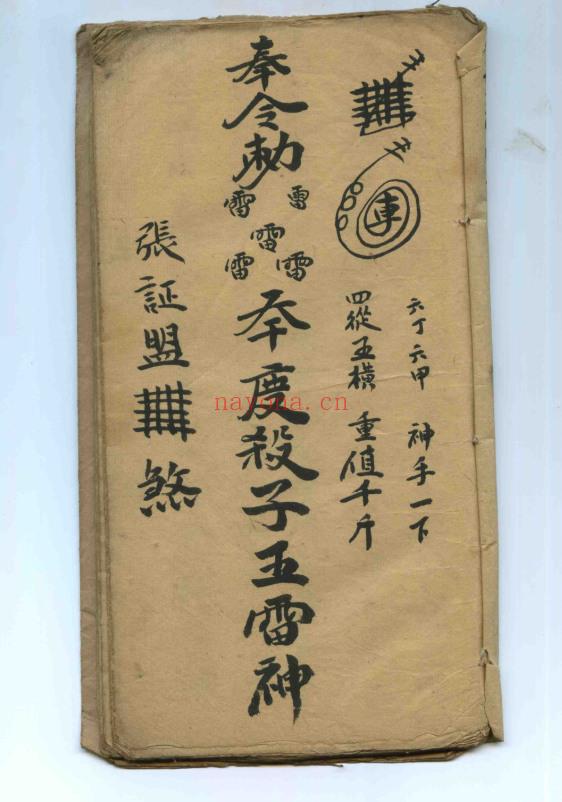 車
六丁六甲 神手一下
四從五橫 重值千斤
奉令勅
雷 雷
雷
雷 雷
夲度殺子五雷神
張証盟 煞
nayona.cn